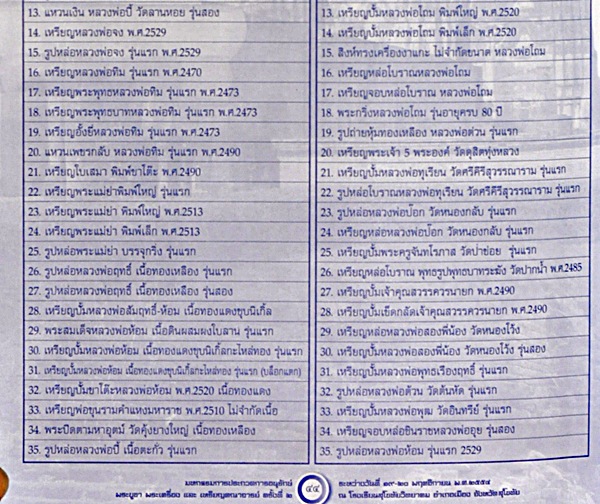 13. แหวนเงิน หลวงพ่อปี้ วัดลานหอย รุ่นสอง
14. เหรียญหลวงพ่อจง พ.ศ.2529
15. รูปหล่อหลวงพ่อจง รุ่นแรก พ.ศ.2529
16. เหรียญหลวงพ่อทิม รุ่นแรก พ.ศ.2470
17. เหรียญพระพุทธหลวงพ่อทิม รุ่นแรก พ.ศ.2473
18. เหรียญพระพุทธบาทหลวงพ่อทิม รุ่นแรก พ.ศ.2473
19. เหรียญอั้งยี่หลวงพ่อทิม รุ่นแรก พ.ศ.2473
20. แหวนเพชรกลับ หลวงพ่อทิม รุ่นแรก พ.ศ.2490
21. เหรียญใบเสมา พิมพ์ขาโต๊ะ พ.ศ.2490
22. เหรียญพระแม่ย่าพิมพ์ใหญ่ รุ่นแรก
23. เหรียญพระแม่ย่า พิมพ์ใหญ่ พ.ศ.2513
24. เหรียญพระแม่ย่า พิมพ์เล็ก พ.ศ.2513
25. รูปหล่อพระแม่ย่า บรรจุกริ่ง รุ่นแรก
26. รูปหล่อหลวงพ่อฤทธิ์ เนื้อทองเหลือง รุ่นแรก
27. รูปหล่อหลวงพ่อฤทธิ์ เนื้อทองเหลือง รุ่นสอง
28. เหรียญปั้มหลวงพ่อสัมฤทธิ์-ห้อม เนื้อทองแดงชุบนิเกิ้ล
29. พระสมเด็จหลวงพ่อห้อม เนื้อดินผสมผงใบลาน รุ่นแรก
30. เหรียญปั้มหลวงพ่อห้อม เนื้อทองแดงชุบนิเกิ้ลกะไหล่ทอง รุ่นแรก
31. เหรียญปั้มหลวงพ่อห้อม เนื้อทองแดงชุบนิเกิ้ลกะไหล่ทอง รุ่นแรก (บล็อกแตก)
32. เหรียญปั้มขาโต๊ะหลวงพ่อห้อม พ.ศ.2520 เนื้อทองแดง
33. เหรียญพ่อขุนรามคำแหงมหาราช พ.ศ.2510 ไม่จำกัดเนื้อ
34. พระปิดตามหาอุตม์ วัดคุ้งยางใหญ่ เนื้อทองเหลือง
35. รูปหล่อหลวงพ่อปี้ เนื้อตะกั่ว รุ่นแรก
13. เหรียญปั้มหลวงพ่อโถม พิมพ์ใหญ่ พ.ศ.2520
14. เหรียญปั้มหลวงพ่อโถม พิมพ์เล็ก พ.ศ.2520
15. สิงห์ทรงเครื่องงาแกะ ไม่จำกัดขนาด หลวงพ่อโถม
16. เหรียญหล่อโบราณหลวงพ่อโถม
17. เหรียญจอบหล่อโบราณ หลวงพ่อโถม
18. พระกริ่งหลวงพ่อโถม รุ่นอายุครบ 80 ปี
19. รูปถ่ายหุ้มทองเหลือง หลวงพ่อด่วน รุ่นแรก
20. เหรียญพระเจ้า 5 พระองค์ วัดดุสิตทุ่งหลวง
21. เหรียญปั้มหลวงพ่อทุเรียน วัดศรีคีรีสุวรรณาราม รุ่นแรก
22. รูปหล่อโบราณหลวงพ่อทุเรียน วัดศรีคีรีสุวรรณาราม รุ่นแรก
23. รูปหล่อหลวงพ่อป๊อก วัดหนองกลับ รุ่นแรก
24. เหรียญหล่อหลวงพ่อป๊อก วัดหนองกลับ รุ่นแรก
25. เหรียญปั้มพระครูจันทโรภาส วัดป่าข่อย รุ่นแรก
26. เหรียญหล่อโบราณ พุทธรูปพุทธบาทระฆัง วัดปากน้ำ พ.ศ.2485
27. เหรียญปั้มเจ้าคุณสวรรควรนายก พ.ศ.2490
28. เหรียญปั้มเข็มกลัดเจ้าคุณสวรรควรนายก พ.ศ.2490
29. เหรียญหล่อหลวงพ่อสองพี่น้อง วัดหนองโว้ง
30. เหรียญปั้มหลวงพ่อสองพี่น้อง วัดหนองโว้ง รุ่นสอง
31. เหรียญปั้มหลวงพ่อพุทธเรืองฤทธิ์ รุ่นแรก
32. รูปหล่อหลวงพ่อด้วน วัดต้นหัด รุ่นแรก
33. เหรียญปั้มหลวงพ่อพุฒ วัดอินทรีย์ รุ่นแรก
34. เหรียญจอบหล่อชินราชหลวงพ่ออุย รุ่นสอง
35. รูปหล่อหลวงพ่อห้อม รุ่นแรก 2529
มหกรรมการประกวดการอนุรักษ์
พระบูชา พระเครื่อง และ เหรียญคณาจารย์ ครั้งที่ ๒
๔๔
ระหว่างวันที่ ๑๙-๒๐ พฤศจิกายน พ.ศ.๒๕๕๔
ณ โรงเรียนสุโขทัยวิทยาคม อำเภอเมือง จังหวัดสุโขทัย